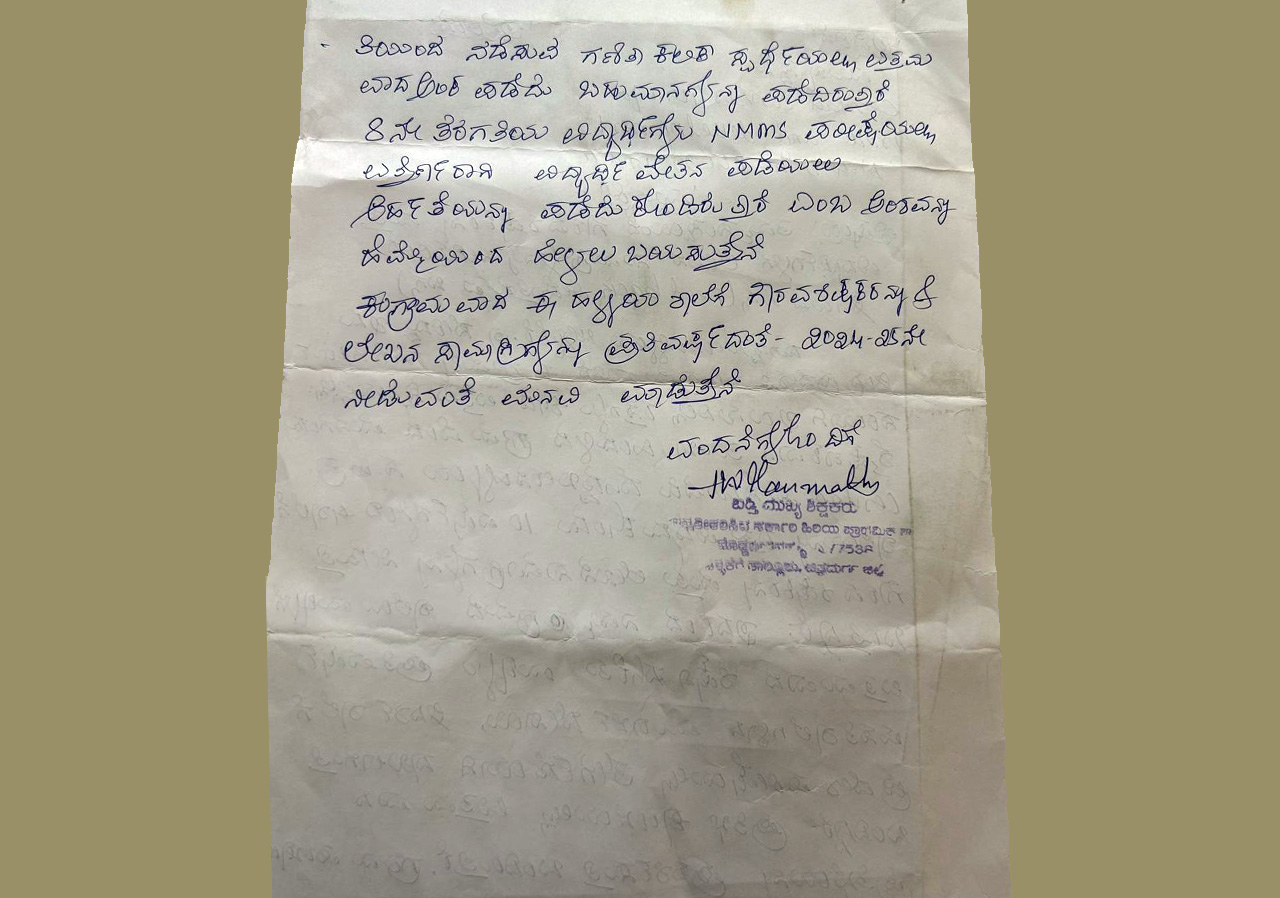 ತಿಯಿಂದ ನಡೆಸುವ ಗಣಿತಾ ಕಲಿಕಾ ಸ್ಪರ್ಧೆಯಲ್ಲಿ ಉತ್ತಮ
ವಾದ ಅಂಕ ಪಡೆದು ಬಹುಮಾನಗಳನ್ನು ಪಡೆದಿರುತ್ತಾರೆ
8ನೇ ತರಗತಿಯ ವಿದ್ಯಾರ್ಥಿಗಳು NMMS ಪರೀಕ್ಷೆಯಲ್ಲಿ
ಉತ್ತೀರ್ಣರಾಗಿ ವಿದ್ಯಾರ್ಥಿ ವೇತನ ಪಡೆಯಲು
ಅರ್ಹತೆಯನ್ನು ಪಡೆದುಕೊಂಡಿರುತ್ತಾರೆ ಎಂಬ ಅಂಶವನ್ನು
ಹೆಮ್ಮೆಯಿಂದ ಹೇಳಲು ಬಯಸುತ್ತೇನೆ
ಕುಗ್ರಾಮವಾದ ಈ ಹಳ್ಳಿಯ ಶಾಲೆಗೆ ಗೌರವಶಿಕ್ಷಕರನ್ನು &
ಲೇಖನ ಸಾಮಾಗ್ರಿಗಳನ್ನು ಪ್ರತಿವರ್ಷದಂತೆ- 2024-25ನೇ
ನೀಡುವಂತೆ ಮನವಿ ಮಾಡುತ್ತೇನೆ
ವಂದನೆಗಳೊಂದಿಗೆ
ಬಡ್ತಿ ಮುಖ್ಯ ಶಿಕ್ಷಕರು
ಸರ್ಕಾರಿ ಹಿರಿಯ ಪ್ರಾಥಮಿಕ ಶಾ
ತಾಲ್ಲೂಕು, ಚಿತ್ರದುರ್ಗ ಜಿಲ್ಲೆ